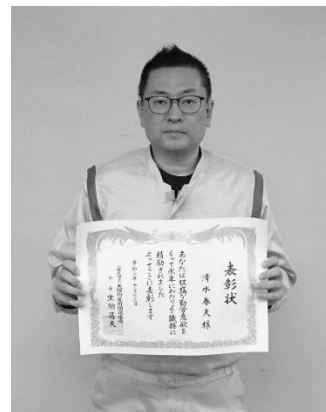 表彰状
清水春夫様
あなたは旺盛な勤労意欲を
もって永年にわたりよく職務に
精励されました
よってここに表彰します
令和二年十月十三日
会長